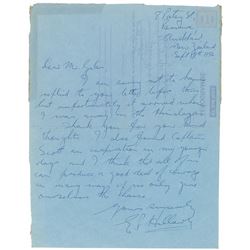 Remuera
Auckland
New Zealand
Dear Mr
I am sorry not to have
replied to your letter before this
but unfortunately it arrived when
I was away in the Himalayas
Thank you for your kind
thoughts. I also found Captain
Scott an inspiration in my younger
days and I think that all of us
can produce a good deal of energy
in many ways if we only give
ourselves the chance.
Yours sincerely
E P Hillary